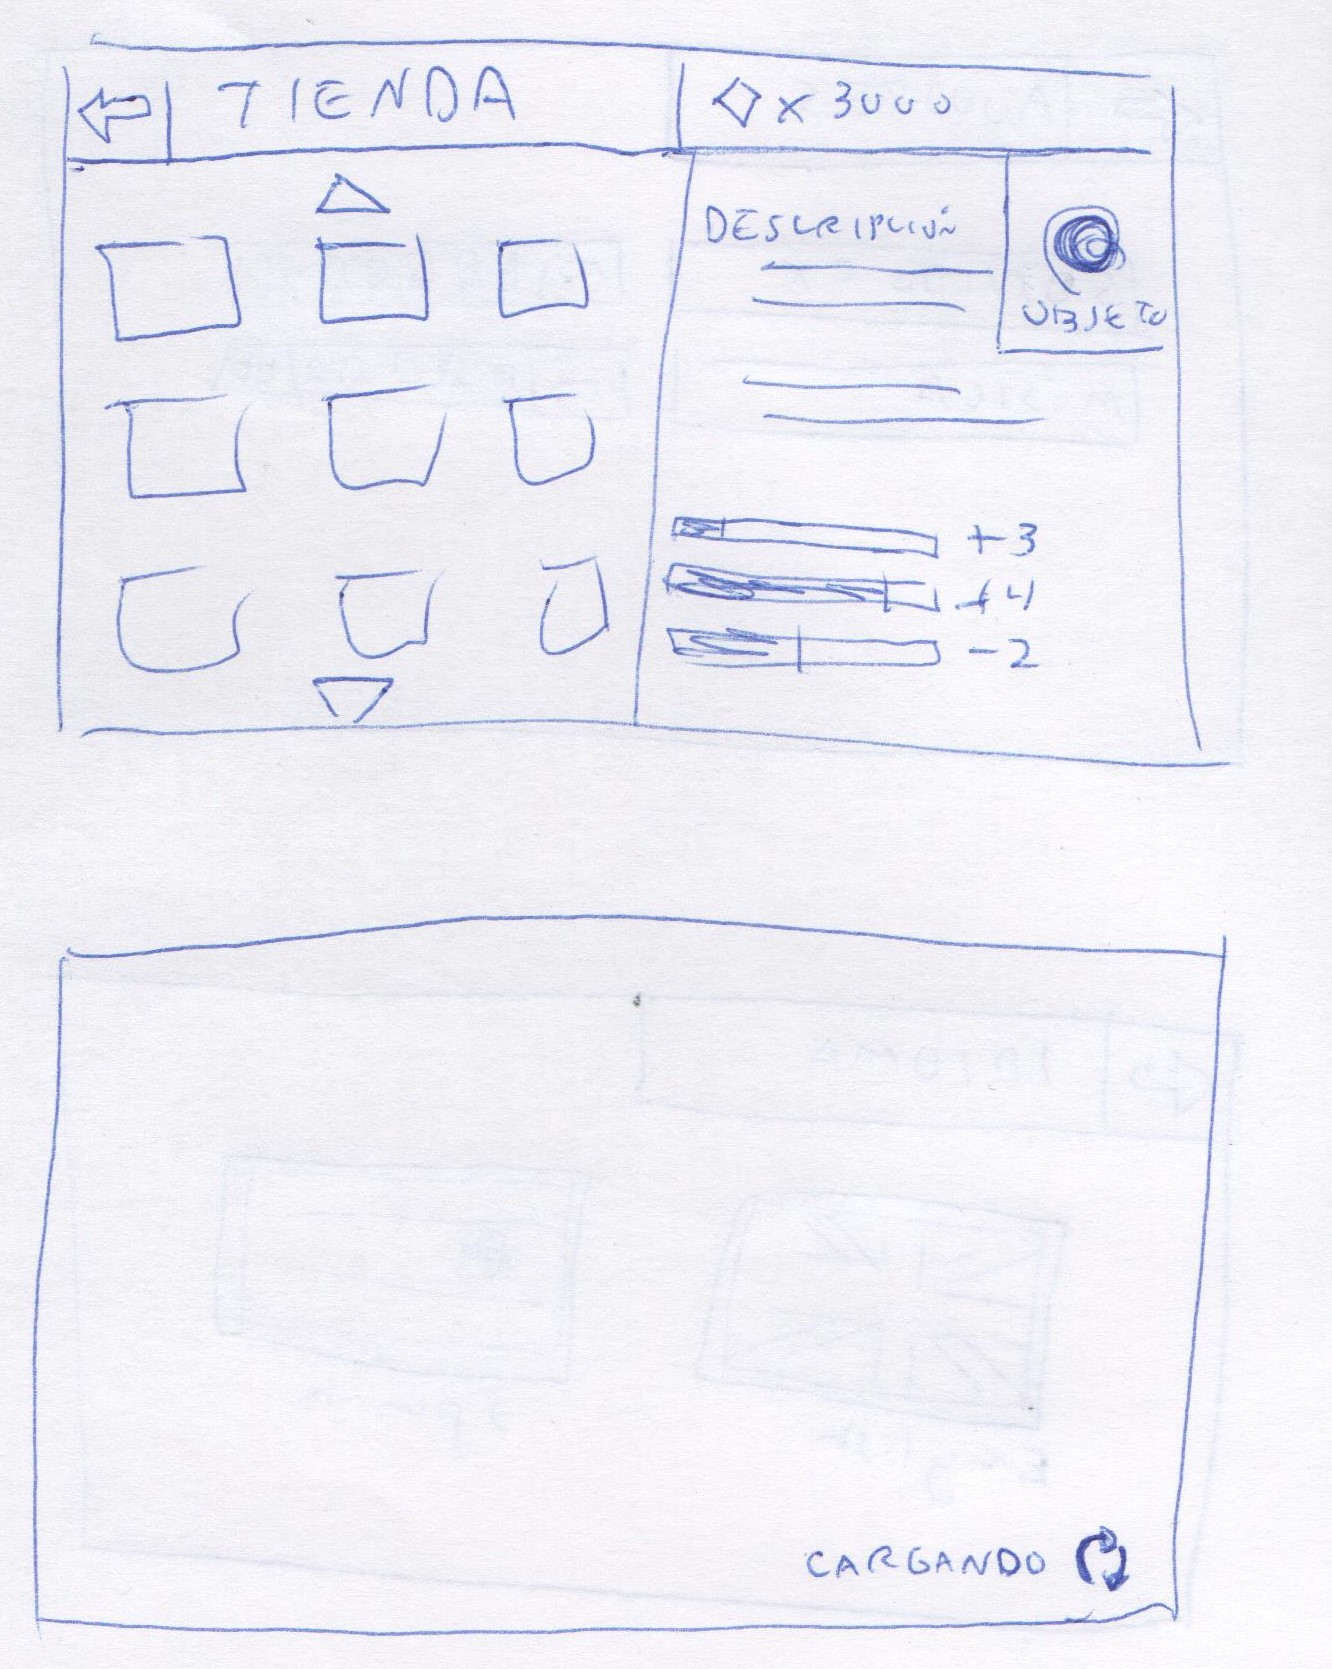 TIENDA
x 3000
DESCRIPCIÓN
OBJETO
+3
+4
-2
CARGANDO